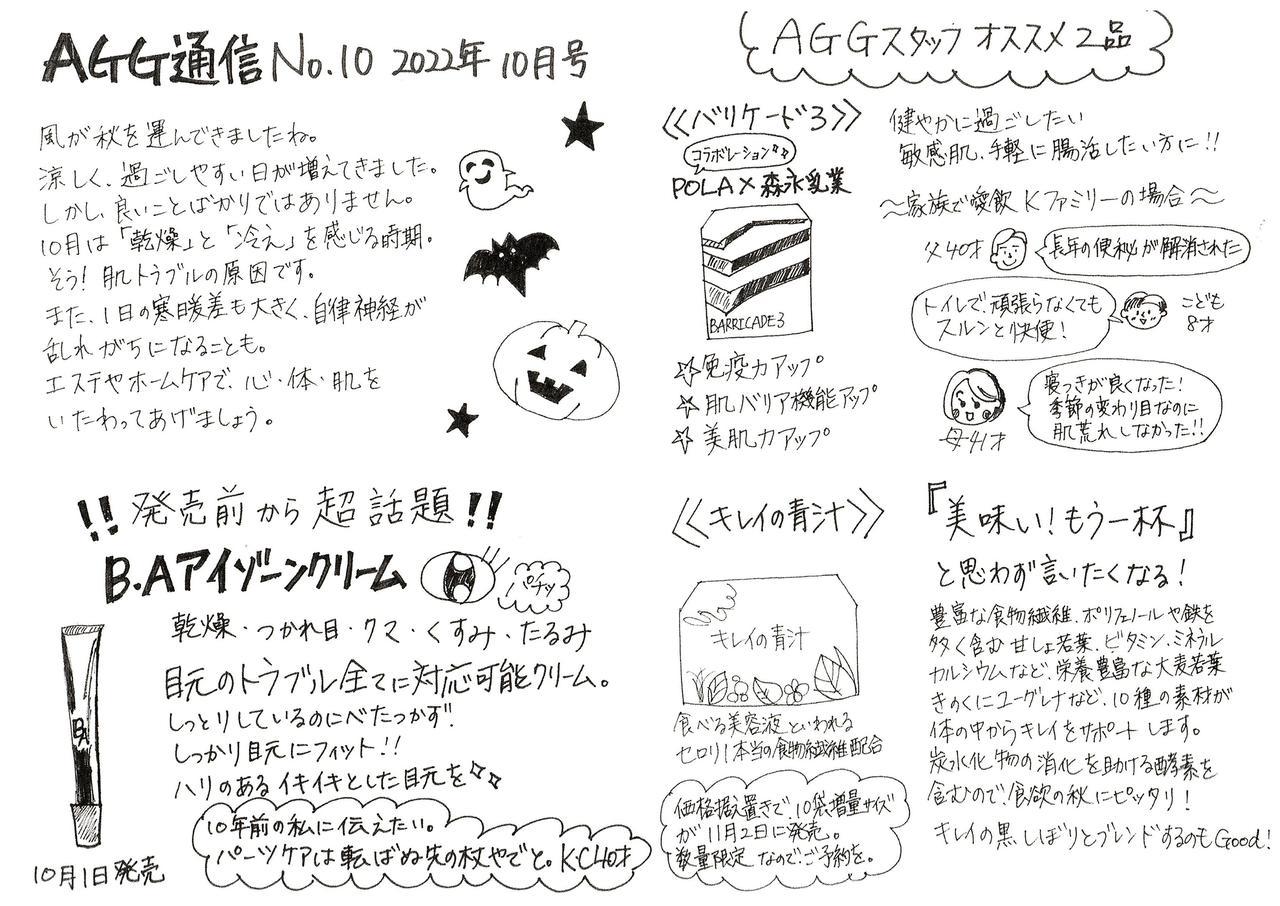 AGG通信 No.10 2022年 10月号
風が秋を運んできましたね。
涼しく、過ごしやすい日が増えてきました。
しかし、良いことばかりではありません。
10月は「乾燥」と「冷え」を感じる時期。
そう! 肌トラブルの原因です。
また、1日の寒暖差も大きく、自律神経が
乱れがちになることも。
エステやホームケアで、心・体・肌を
いたわってあげましょう。
!! 発売前から超話題 !!
B.Aアイゾーンクリーム
パチッ
乾燥・つかれ目・クマ・くすみ・たるみ
目元のトラブル全てに対応可能クリーム。
しっとりしているのにべたつかず!
しっかり目元にフィット!!
ハリのあるイキイキとした目元を
BA
10年前の私に伝えたい。
パーツケアは転ばぬ先の杖やでと。K.C40才
10月1日発売
AGGスタッフ オススメ2品
《バリケード3》
コラボレーション
POLA×森永乳業
BARRICADE3
☆免疫力アップ
☆肌バリア機能アップ
☆美肌力アップ
健やかに過ごしたい
敏感肌、手軽に腸活したい方に!!
〜家族で愛飲 Kファミリーの場合〜
父40才
長年の便秘が解消された
トイレで、頑張らなくても
スルンと快便!
こども
8才
母41才
寝つきが良くなった!
季節の変わり目なのに
肌荒れしなかった!!
《キレイの青汁》
キレイの青汁
食べる美容液といわれる
セロリ1本当の食物繊維配合
価格据え置きで、10袋増量サイズ
が11月2日に発売。
数量限定なのでご予約を。
『美味い!もう一杯』
と思わず言いたくなる!
豊富な食物繊維、ポリフェノールや鉄を
多く含む甘しょ若葉、ビタミン、ミネラル
カルシウムなど、栄養豊富な大麦若葉
きのくにユーグレナなど、10種の素材が
体の中からキレイをサポートします。
炭水化物の消化を助ける酵素を
含むので、食欲の秋にピッタリ!
キレイの黒しぼりとブレンドするのもGood!